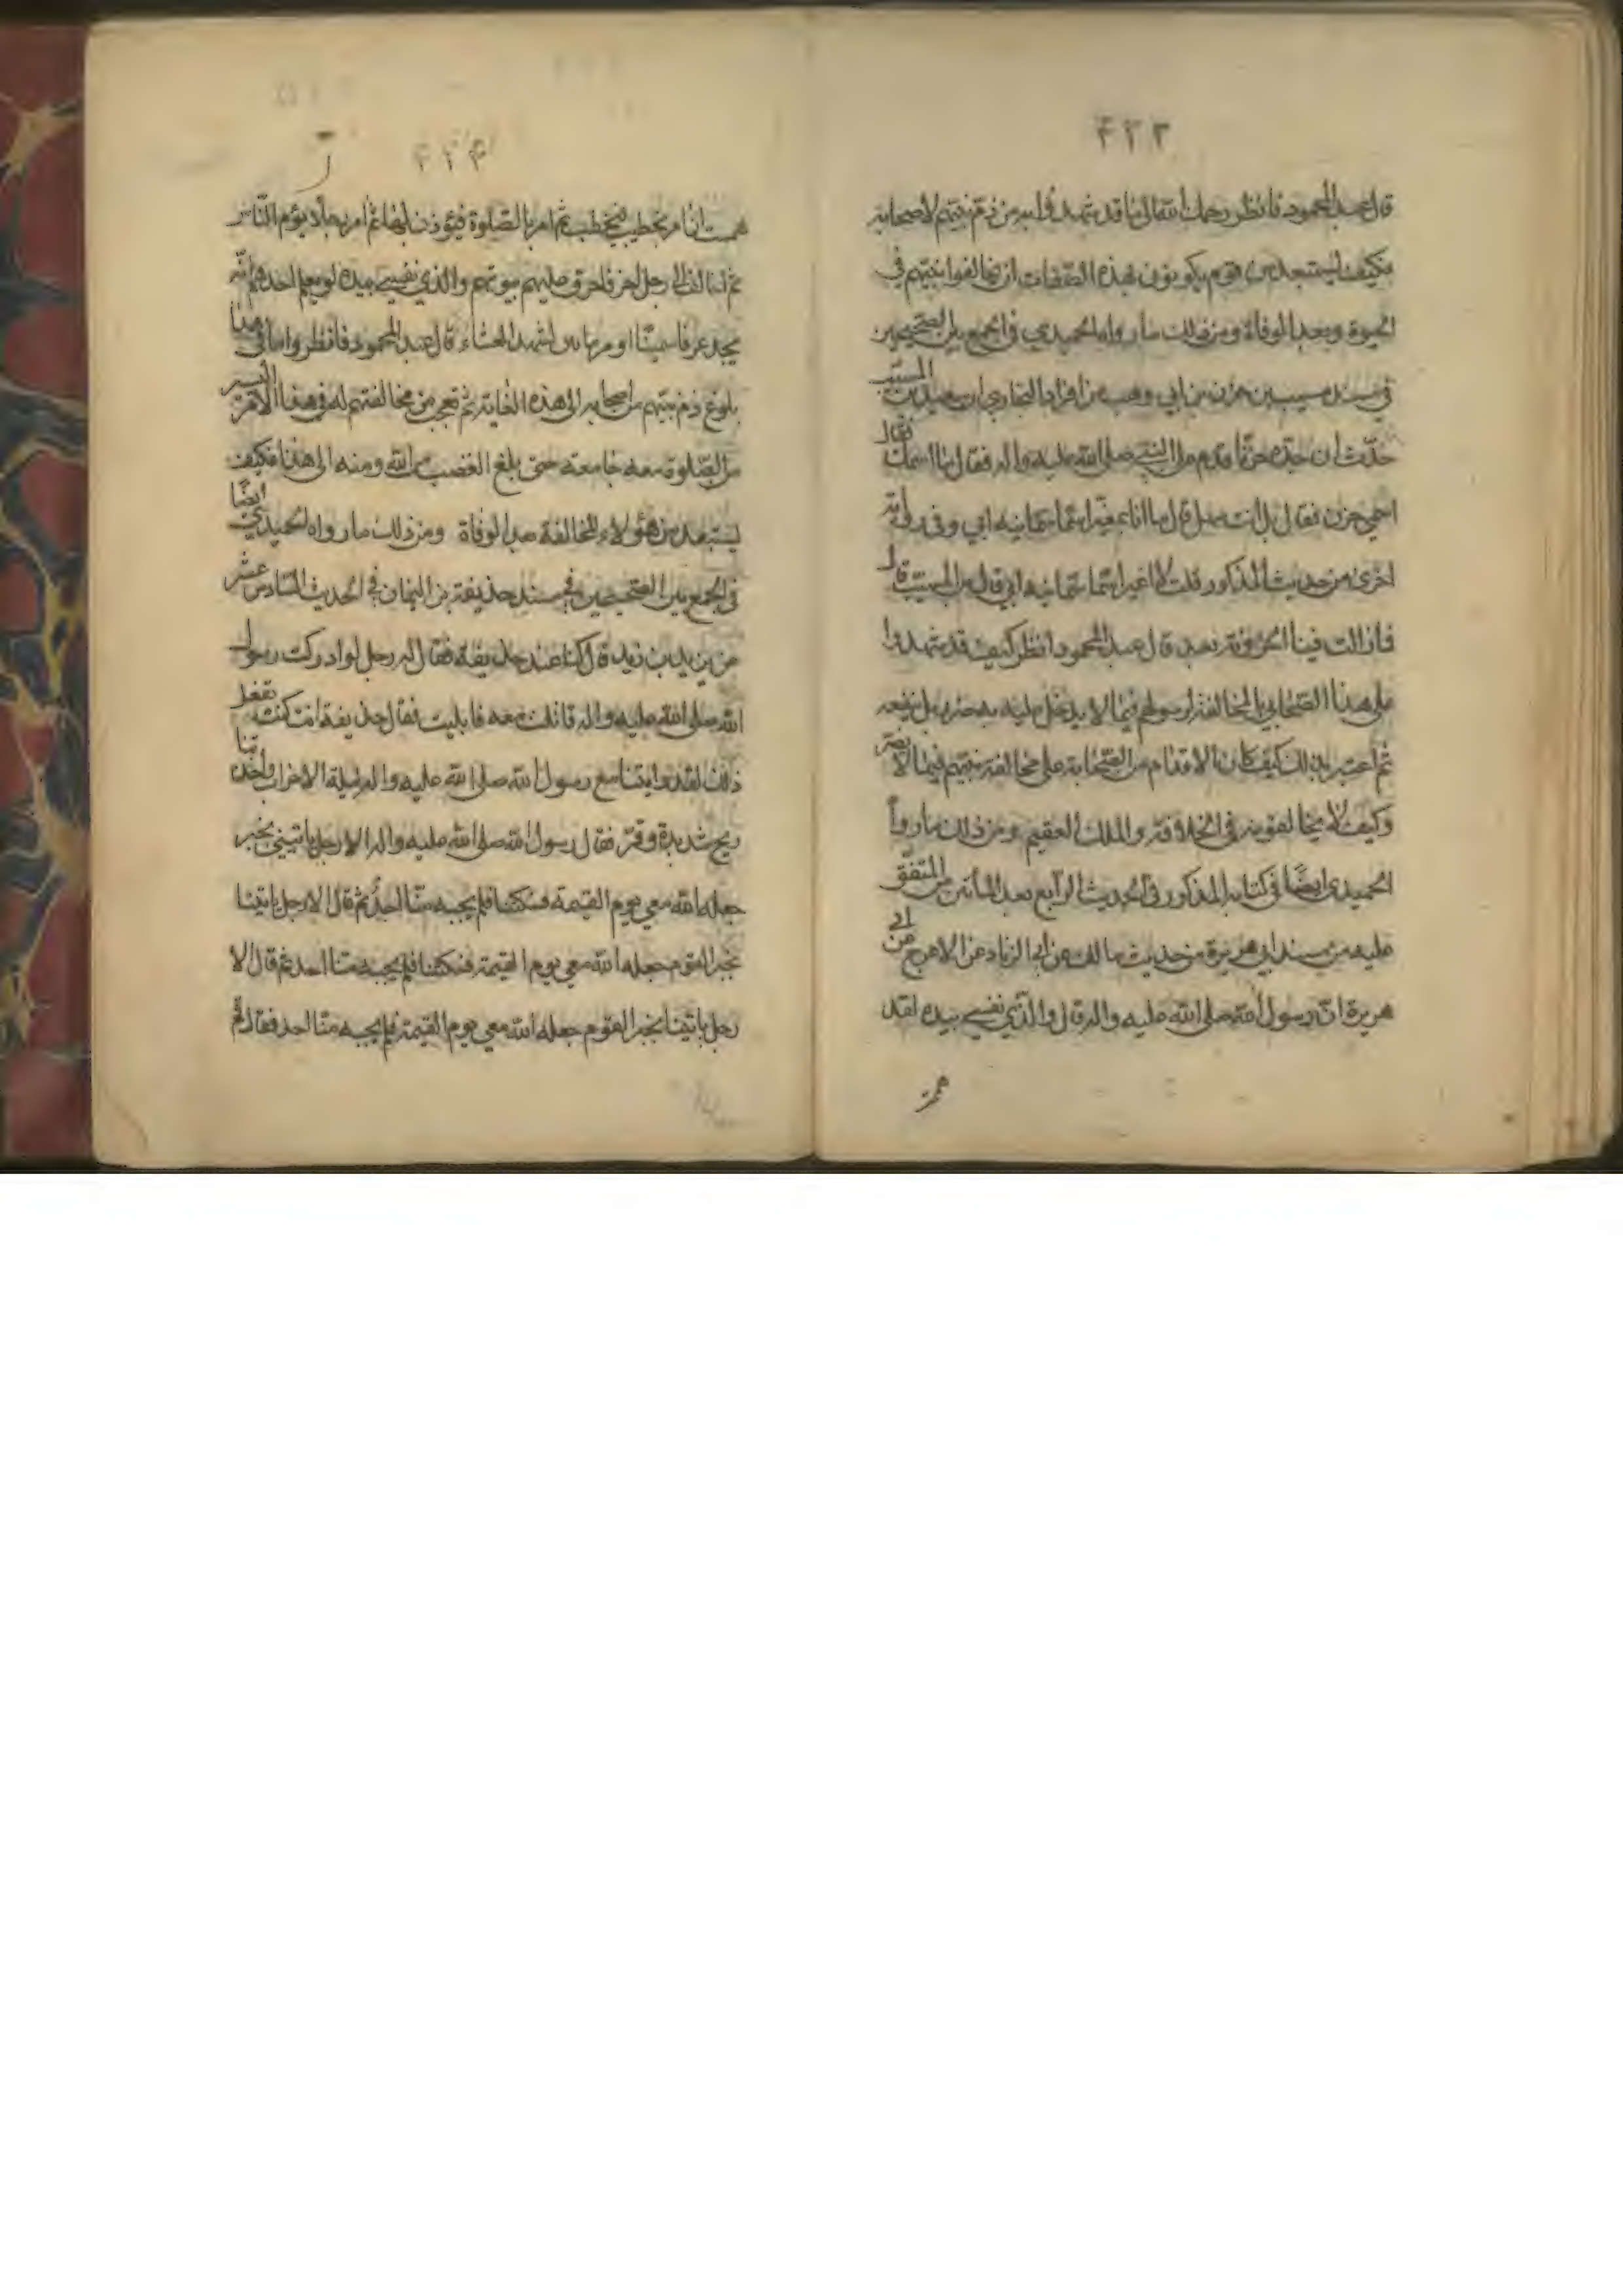 ٤٢٣
قال عبد المحمود فانظر رحمك الله تعالى ما قد شهدوا به من ذم نبيهم لاصحابه
فكيف يستبعد من قوم يكونون بهذه الصفات ان يخالفوا نبيهم في
الحيوة وبعد الوفاة ومن ذلك ما رواه الحميدي في الجمع بين الصحيحين
في مسند مسيب بن حزن بن ابي وهب من افراد البخاري ان سعيد بن المسيب
حدّث ان جده حزنا قدم على النبي صلى الله عليه واله فقال ما اسمك فقال
اسمي حزن فقال بل انت سهل قال ما انا بمغير اسما سمانيه ابي وفي رواية
اخرى من حديث المذكور قلت لا اغير اسما سمانيه ابي قال بن المسيب قال
فما زالت فينا الحزونة بعد قال عبد المحمود انظر كيف قد شهدوا
على هذا الصحابي بالمخالفة لرسولهم فيما لا يدخل عليه به ضرر بل ينفعه
ثم اعتبر بذلك كيف كان الاقدام من الصحابة على مخالفة نبيهم فيما لا يضر
وكيف لا يخالفونه في الخلافة والملك العقيم ومن ذلك ما روا
الحميدي ايضًا في كتابه المذكور في الحديث الرابع بعد المأتين من المتفق
عليه من مسند ابي هريرة من حديث مالك عن ابي الزناد عن الاعرج عن ابي
هريرة انّ رسول الله صلى الله عليه واله قال والذي نفسي بيده لقد
٤٢٤
هممت ان امر بحطب فيحطب ثم امر بالصلوة فيؤذن لها ثم امر رجلا يؤم الناس
ثم اخالف الى رجل اخر فاحرق عليهم بيوتهم والذي نفسي بيده لو يعلم احدهم انه
يجد عرقا سمينا او مرماتين لشهد العشاء قال عبد المحمود فانظروا ما في هذا
بلوغ ذم نبيهم من اصحابه الى هذه الغاية ثم تعجب من مخالفتهم له في هذا الامر اليسير
من الصلوة معه جامعة حتى بلغ الغضب من الله ومنه الى هذا فكيف
يستبعد من هؤلاء المخالفة بعد الوفاة ومن ذلك ما رواه الحميدي ايضًا
في الجمع بين الصحيحين في مسند حذيفة بن اليمان في الحديث السادس عشر
عن يزيد بن زيد قال كنا عند حذيفة فقال له رجل لو ادركت رسول
الله صلى الله عليه واله قاتلت معه فابليت فقال حذيفة انت كنت تفعل
ذلك لقد رايتنا مع رسول الله صلى الله عليه واله ليلة الاحزاب واخذتنا
ريح شديدة وقرّ فقال رسول الله صلى الله عليه واله الا رجل ياتيني بخبر
جعله الله معي يوم القيمة فسكتنا فلم يجبه منّا احدٌ ثم قال الا رجل ياتينا
بخبر القوم جعله الله معي يوم القيمة فسكتنا فلم يجبه منا احد ثم قال الا
رجل ياتينا بخبر القوم جعله الله معي يوم القيمة فلم يجبه منّا احد فقال قم